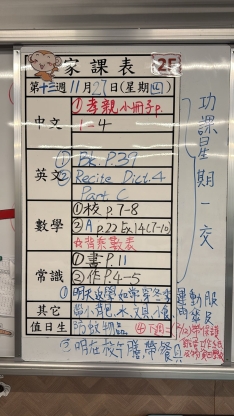 家課表 2E
第十三週 11月27日(星期四)
中文 ①孝親小冊子p.
1-4
英文 ① Bk. P.39
② Recite Dict.4
Part C
數學 ①校 p.7-8
② A p.22 Ex.14(7-10)
☆背乘數表
常識 ①書 P.11
②作 P.4-5
其它 ①明天放學如常穿冬季運動服
帶小肥水,文具,小食
值日生 防蚊物品 ④下週二
③明在校午膳帶餐具
功課星期一交